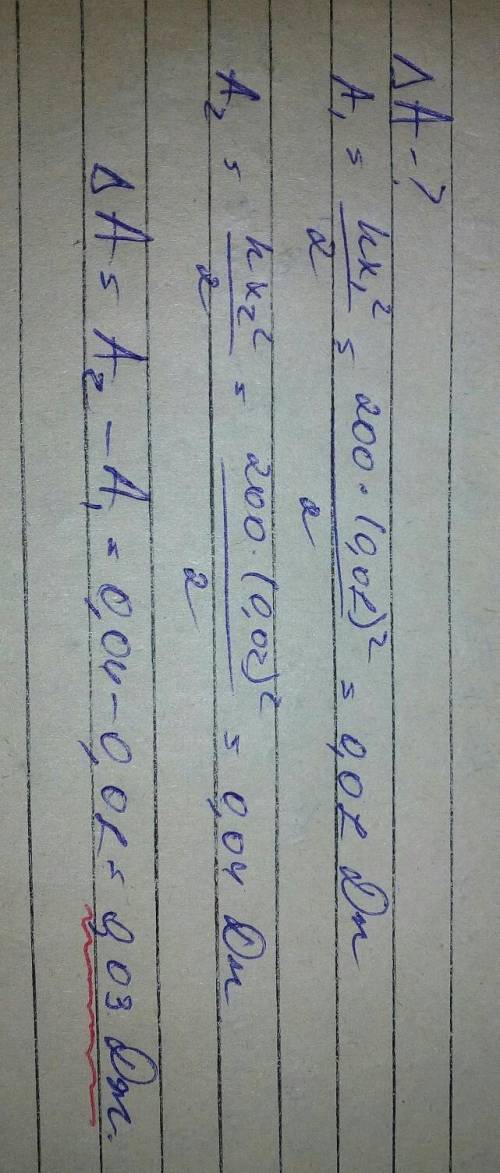 ΔA - ?
A₁ = kx₁²/2 = 200·(0,01)²/2 = 0,01 Дж
A₂ = kx₂²/2 = 200·(0,02)²/2 = 0,04 Дж
ΔA = A₂ - A₁ = 0,04 - 0,01 = 0,03 Дж.